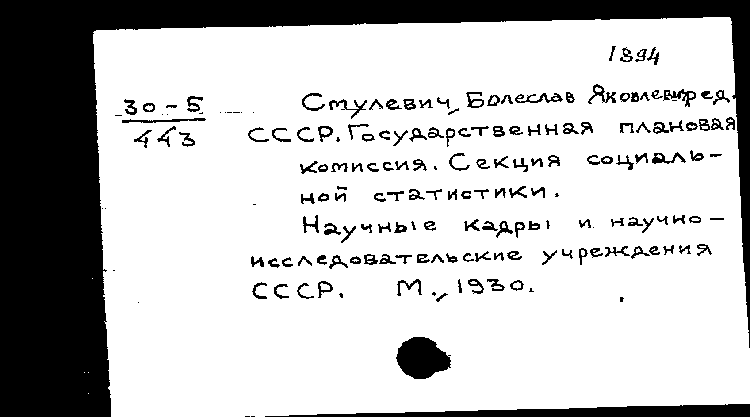 1894
30-5
443
Стулевич, Болеслав Яковлевич, ред.
СССР. Государственная плановая
комиссия. Секция социаль-
ной статистики.
Научные кадры и научно-
исследовательские учреждения
СССР. М., 1930.